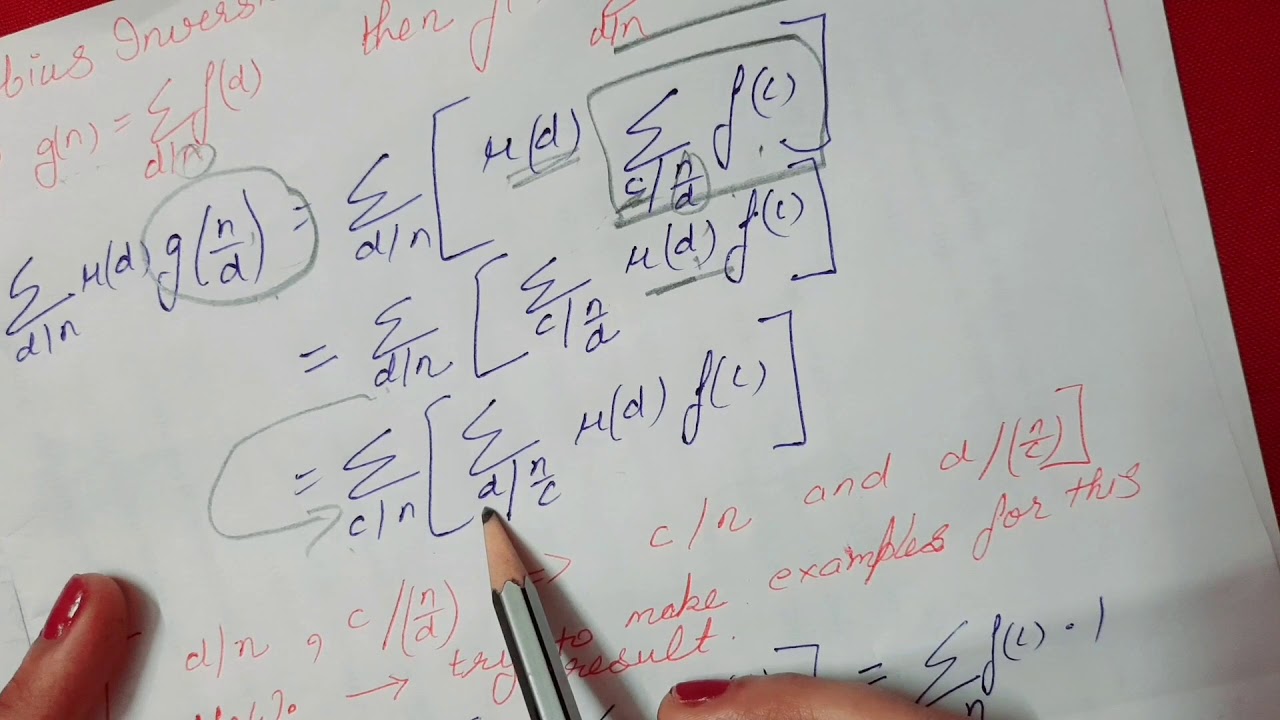 Inversi
then f
d|n
g(n) = Σ_{d|n} f(d)
Σ_{d|n} μ(d) g(n/d) = Σ_{d|n} [ μ(d) Σ_{c|n/d} f(c) ]
= Σ_{d|n} [ Σ_{c|n/d} μ(d) f(c) ]
= Σ_{c|n} [ Σ_{d|n/c} μ(d) f(c) ]
d/n , c/(n/d) => c/n and d/(n/c) ]
→ try to make examples for this
result.
] = Σ_n f(c) · 1